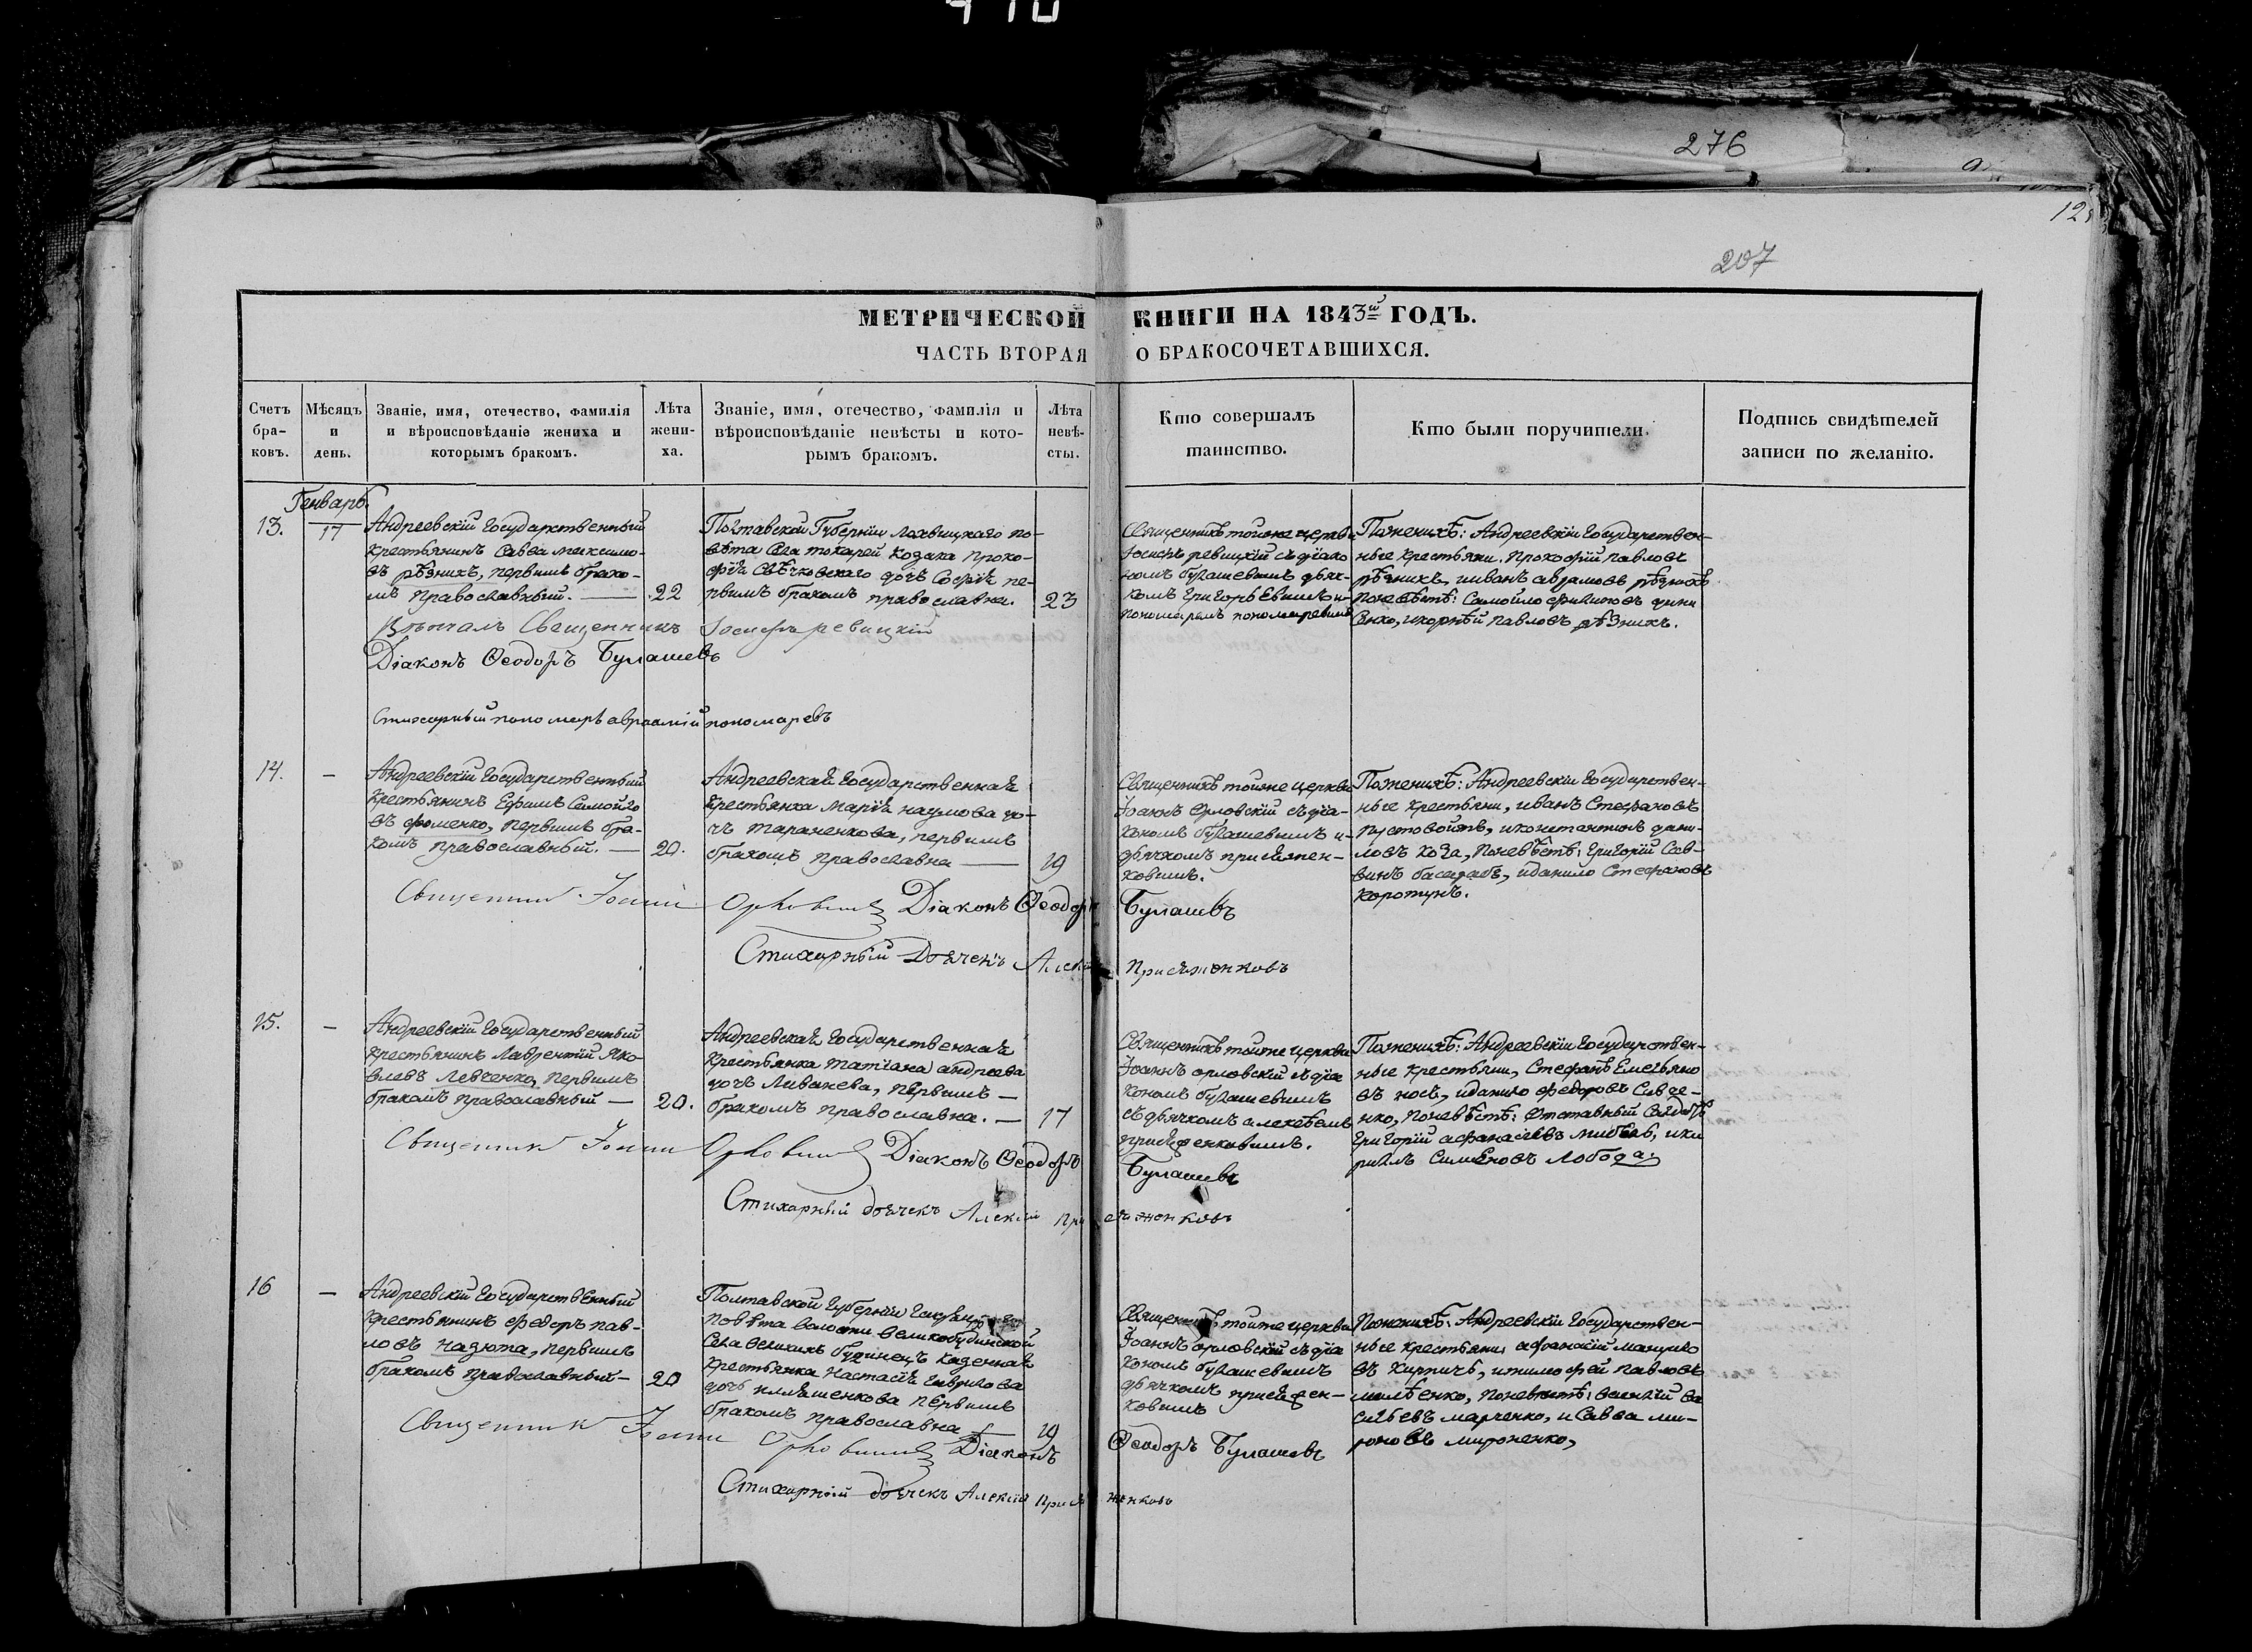 276
207
МЕТРИЧЕСКОЙ КНИГИ НА 1843й ГОДЪ.
ЧАСТЬ ВТОРАЯ О БРАКОСОЧЕТАВШИХСЯ.
Счетъ бра-ковъ.
Мѣсяцъ и день.
Званіе, имя, отечество, фамилія и вѣроисповѣданіе жениха и которымъ бракомъ.
Лѣта жени-ха.
Званіе, имя, отечество, фамилія и вѣроисповѣданіе невѣсты и кото-рымъ бракомъ.
Лѣта невѣ-сты.
Кто совершалъ таинство.
Кто были поручители.
Подпись свидѣтелей записи по желанію.
Генварь.
13.
17
Андреевскій Государственный
крестьянинъ Савва максимо-
въ рѣзникъ, первымъ брако-
мъ православный.
22
Полтавской Губерніи Лохвицкаго по-
вѣта села токарей козака проко-
фія Свѣчковскаго дочь Софія пе-
рвымъ бракомъ православна.
23
Священникъ тойже церкви
Іосифъ ревицкій съ діако
номъ булашевымъ дьяч-
комъ Григорьевымъ и
пономаремъ пономаревымъ
Поженихѣ: Андреевскіи Государствен-
ные крестьяни, Прокофій павловъ
рѣзникъ, ииванъ аврамовъ рѣзникъ
Поневѣстѣ: Самойло
енко, икорнѣй павловъ рѣзникъ.
Вѣнчалъ Священникъ Іосифъ ревицкій
Діаконъ Ѳеодоръ Булашевъ
Стихарный пономарь авраамій пономаревъ
14.
—
Андреевскій Государственный
крестьянинъ Ефимъ Самойло
въ фоменко, первымъ бра-
комъ православный.
20.
Андреевская Государственная
крестьянка марія наумова до-
чь тараненкова, первымъ
бракомъ православна
19
Священникъ тойже церкви
Іоаннъ Орловскій съ діа-
кономъ булашевымъ и
дьячкомъ присяжен-
ковымъ.
Поженихѣ: Андреевскіи Государствен-
ные крестьяни, иванъ Стефановъ
пустовойтъ, иконстантинъ дани-
ловъ коза, Поневѣстѣ: Григорій Сав-
винъ басарабъ, иданило Стефановъ
коротунъ.
Священникъ Іоаннъ Орловскій Діаконъ Ѳеодоръ Булашевъ
Стихарный Дьячекъ Алексій Присяженковъ
15.
—
Андреевскій Государственный
крестьянинъ Лаврентій Яко
влевъ Левченко, первымъ
бракомъ православный
20.
Андреевская Государственная
крестьянка татіана андреева
дочь Ливанева, первымъ
бракомъ православна.
17
Священникъ тойже церкви
Іоаннъ орловскій съ діа
кономъ булашевымъ
съ дьячкомъ алексѣемъ
присяженковымъ.
Поженихѣ: Андреевскіи Государствен-
ные крестьяни, Стефанъ Емельяно
въ носъ, иданило федоровъ Сивде-
нко, Поневѣстѣ: Отставный Солдатъ
Григорій афанасіевъ, ики
рилъ Симеоновъ Лобода.
Священникъ Іоаннъ Орловскій Діаконъ Ѳеодоръ Булашевъ
Стихарный дьячекъ Алексій присяженковъ
16
—
Андреевскій Государственный
крестьянинъ федоръ пав-
ловъ Надюта, первымъ
бракомъ православный
20
Полтавской Губерніи
повѣта волости великобудинской
села великихъ будинецъ казенная
крестьянка Настасія Гаврилова
дочь первымъ
бракомъ православна
19
Священникъ тойже церкви
Іоаннъ орловскій съ діа
кономъ булашевымъ
дьячкомъ присяжен-
ковымъ
Поженихѣ: Андреевскіи Государствен-
ные крестьяни афанасій мануило
въ кирпичъ, итимофей павловъ
Поневѣстѣ: Василій ва
сильевъ марченко, и Савва ми-
роновъ мироненко,
Священникъ Іоаннъ Орловскій Діаконъ Ѳеодоръ Булашевъ
Стихарный дьячекъ Алексій присяженковъ